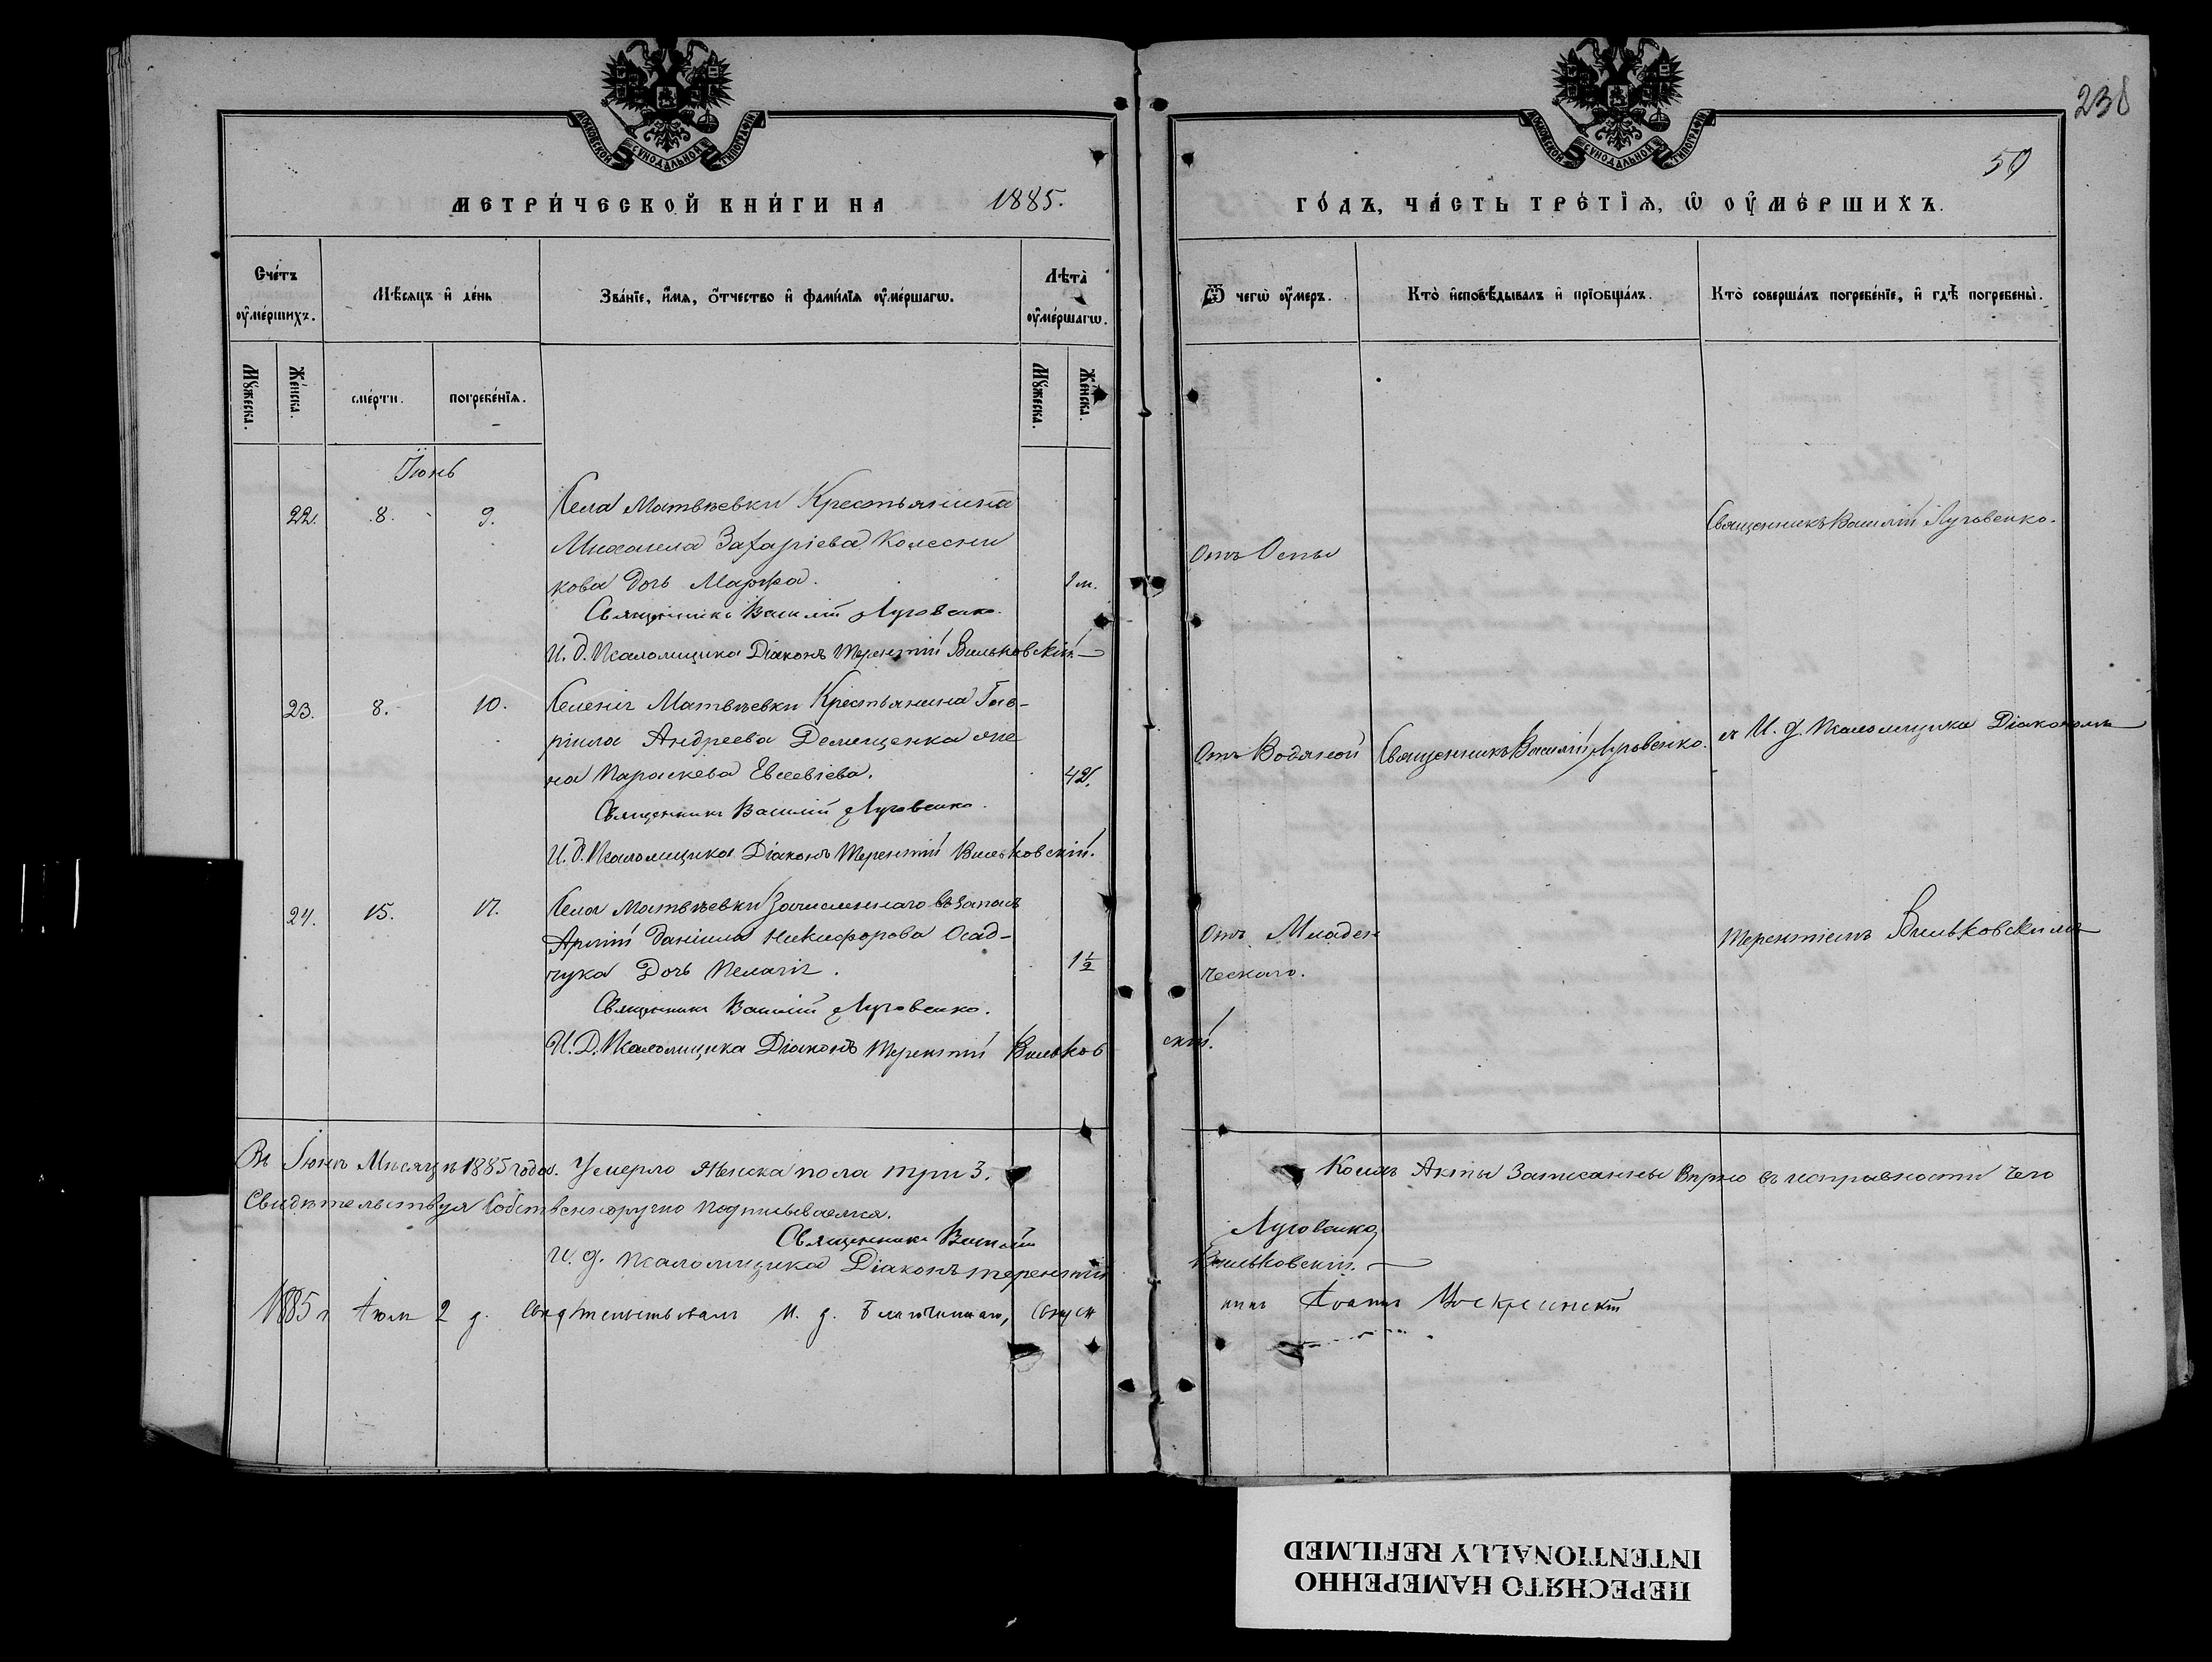 238
59
МОСКОВСКОЙ СѴНОДАЛЬНОЙ ТИПОГРАФІИ
МОСКОВСКОЙ СѴНОДАЛЬНОЙ ТИПОГРАФІИ
МЕТРИ́ЧЕСКОЙ КНИ́ГИ НА 1885.
ГО́ДЪ, ЧА́СТЬ ТРЕ́ТІѦ, Ѡ ОУ҆МЕ́РШИХЪ.
Сче́тъ оу҆ме́ршихъ.
Мѣ́сяцъ и҆ де́нь
Зва́нїе, и҆́мѧ, ѻ҆́тчество и҆ фами́лїѧ оу҆ме́ршагѡ.
Лѣта̀ оу҆ме́ршагѡ.
Ѿ чегѡ̀ оу҆́меръ.
Кто̀ и҆сповѣ́дывалъ и҆ прїобща́лъ.
Кто̀ соверша́лъ погребе́нїе, и҆ гдѣ̀ погребены̀.
Мꙋ́жеска.
Же́нска.
сме́рти.
погребе́нїѧ.
Мꙋ́жеска.
Же́нска.
Іюнь
22. 8. 9. Села Матвѣевки Крестьянина
Михаила Захаріева Колесни
кова дочь Марфа. 1 м.
Священникъ Василій Луговенко.
И. д. Псаломщика Діаконъ Терентій Вильковскій.
Отъ Оспы
Священникъ Василій Луговенко.
23. 8. 10. Селенія Матвѣевки Крестьянина Гав-
ріила Андреева Демищенка же
на Параскева Евсевіева. 42.
Священникъ Василій Луговенко.
И. д. Псаломщика Діаконъ Терентій Вильковскій.
Отъ Водяной
Священникъ Василій Луговенко.
съ И. д. Псаломщика Діакономъ
24. 15. 17. Села Матвѣевки Зачисленнаго въ запасъ
Арміи Даніила Никифорова Осад-
чука Дочь Пелагія. 1½
Священникъ Василій Луговенко.
И. Д. Псаломщика Діаконъ Терентій Вильковскій.
Отъ Младен
ческаго.
Терентіемъ Вильковскимъ
Въ Іюнѣ Мѣсяцѣ 1885 года. Умерло женска пола три 3. Коимъ Акты Записанны Вѣрно въ исправности чего
Свидѣтельствуя Собственноручно подписываемся.
Священникъ Василій Луговенко
И. д. Псаломщика Діаконъ Терентій Вильковскій.
1885 г. Іюля 2 д. свидѣтельствовалъ И. д. Благочиннаго, Священникъ Іоаннъ Воскресенскій
ПЕРЕСНЯТО НАМЕРЕННО
INTENTIONALLY REFILMED